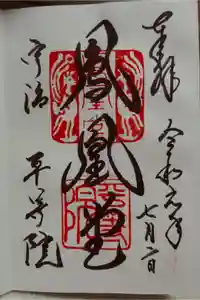 奉拝
令和元年
七月二日
鳳凰堂
宇治
平等院